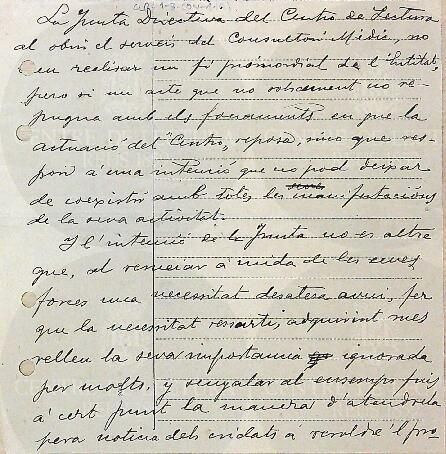 La Junta Directiva del Centro de Lectura
al obrir el servei del Consultori Mèdic, no
creu realisar un fi primordial de l'Entitat,
pero si un acte que no solsament no re-
pugna amb els fonaments en que la
actuació del "Centro" reposa, sino que res-
pon à una intenció que no pod deixar
de coexistir amb totes les manifestacions
de la seva activitat.
Y l'intenció de la Junta no es altre
que, al remeiar à mida de les seves
forces una necessitat desatesa avui, fer
que la necessitat ressurti, adquirint mes
relleu la seva importancia ignorada
per molts, y senyalar al ensemps fins
à cert punt la manera d'atendrela
pera noticia dels cridats à resoldre 'l pro